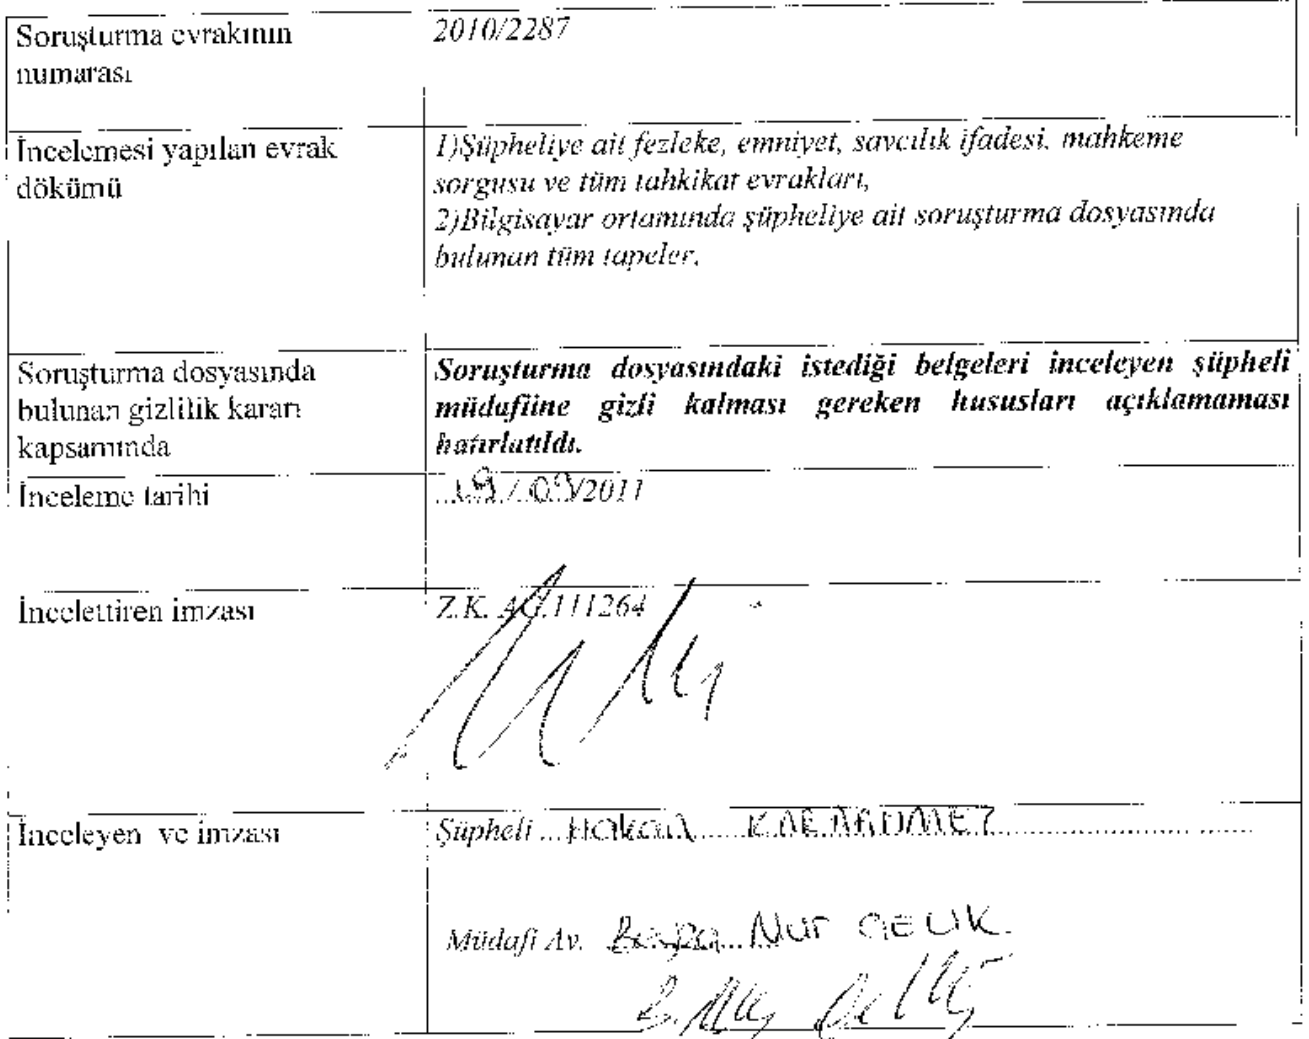 Soruşturma evrakının
numarası
2010/2287
İncelemesi yapılan evrak
dökümü
1)Şüpheliye ait fezleke, emniyet, savcılık ifadesi, mahkeme
sorgusu ve tüm tahkikat evrakları,
2)Bilgisayar ortamında şüpheliye ait soruşturma dosyasında
bulunan tüm tapeler.
Soruşturma dosyasında
bulunan gizlilik kararı
kapsamında
Soruşturma dosyasındaki istediği belgeleri inceleyen şüpheli
müdafiine gizli kalması gereken hususları açıklamaması
hatırlatıldı.
İnceleme tarihi
19/09/2011
İncelettiren imzası
Z.K. AG.111264
İnceleyen ve imzası
Şüpheli Hakan
Müdafi Av. Nur ÇELİK